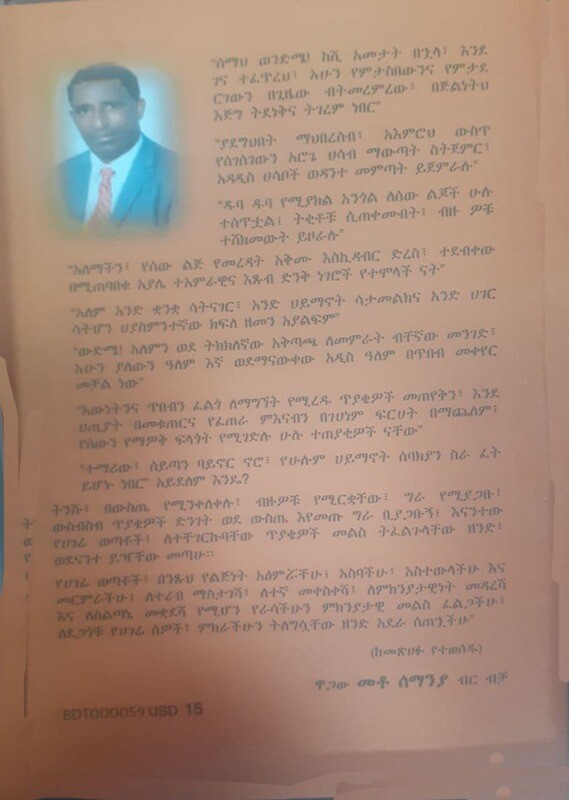 "ሰማህ ወንድሜ! ከሺ አመታት በኋላ፣ እንደ
ገና ተፈጥረህ፣ አሁን የምታስበውንና የምታደ
ርገውን በጊዜው ብትመረምረው፣ በጅልነትህ
እጅግ ትደነቅና ትገረም ነበር"
"ያደግህበት ማህበረሰብ፣ አእምሮህ ውስጥ
የሰገሰገውን አሮጌ ሀሳብ ማውጣት ስትጀምር፣
አዳዲስ ሀሳቦች ወዳንተ መምጣት ይጀምራሉ"
"ዱባ ዱባ የሚያክል አንጎል ለሰው ልጆች ሁሉ
ተሰጥቷል፤ ትቂቶቹ ሲጠቀሙበት፣ ብዙ ዎቹ
ተሸክመውት ይዞራሉ"
"አለማችን፣ የሰው ልጅ የመረዳት አቅሙ እስኪዳብር ድረስ፣ ተደብቀው
በሚጠባበቁ እያሌ ተአምራዊና እጹብ ድንቅ ነገሮች የተሞላች ናት"
"አለም አንድ ቋንቋ ሳትናገር፣ አንድ ሀይማኖት ሳታመልክና አንድ ሀገር
ሳትሆን ሀያስምንተኛው ክፍለ ዘመን አያልፍም"
"ውድሜ! አለምን ወደ ትክክለኛው አቅጣጫ ለመምራት ብቸኛው መንገድ፣
አሁን ያለውን ዓለም እኛ ወደማናውቀው አዲስ ዓለም በጥበብ መቀየር
መቻል ነው"
"እውነትንና ጥበብን ፈልጎ ለማግኘት የሚረዱ ጥያቄዎች መጠየቅን፣ እንደ
ሀጢያት በመቁጠርና የፈጠራ ምእናብን በገሀነም ፍርሀት በማጨለም፣
የሰውን የማዎቅ ፍላጎት የሚገድሉ ሁሉ ተጠያቂዎች ናቸው"
"ተማሪው፣ ሰይጣን ባይኖር ኖሮ፣ የሁሉም ሀይማኖት ሰባክያን ስራ ፈት
ይሆኑ ነበር" አይደለም እንዴ?
ትንሹ፣ በውስጤ የሚንቀለቀሉ፣ ብዙዎቹ የሚርቋቸው፣ ግራ የሚያጋቡ፣
ውስብስብ ጥያቄዎች ድንገት ወደ ውስጤ እየመጡ ግራ ቢያጋቡኝ፣ እናንተው
የሀገሬ ወጣቶች፣ ለተቸገርኩባቸው ጥያቄዎች መልስ ትፈልጉላቸው ዘንድ፣
ወደናንተ ይዣቸው መጣሁ።
የሀገሬ ወጣቶች፣ በንጹህ የልጅነት አዕምሯችሁ፣ አስባችሁ፣ አስተውላችሁ እና
መርምራችሁ፣ ለተራብ ማስታገሻ፣ ለተኛ መቀስቀሻ፣ ለምክንያታዊነት መዳረሻ
እና ለስልጣኔ መቋደሻ የሚሆን የራሳችሁን ምክንያታዊ መልስ ፈልጋችሁ፣
ለደጋጎቹ የሀገሬ ሰዎች፣ ምክራችሁን ትለግሷቸው ዘንድ አደራ ሰጠኋችሁ"
(ከመጽሀፉ የተወሰዱ)
ዋጋው መቶ ሰማንያ ብር ብቻ
BDT000059 USD 15